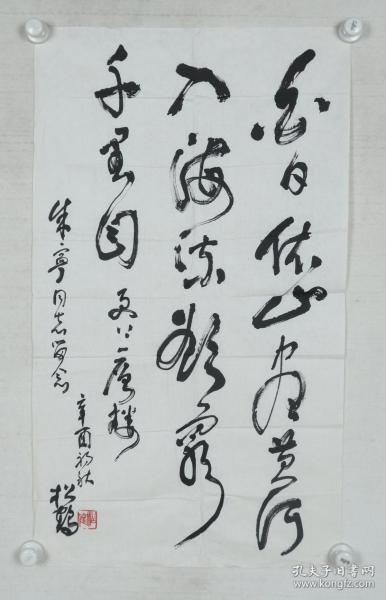 白日依山尽黄河
入海流欲穷
千里目更上一层楼
朱宁同志留念
辛酉初秋
松鹤
孔夫子旧书网